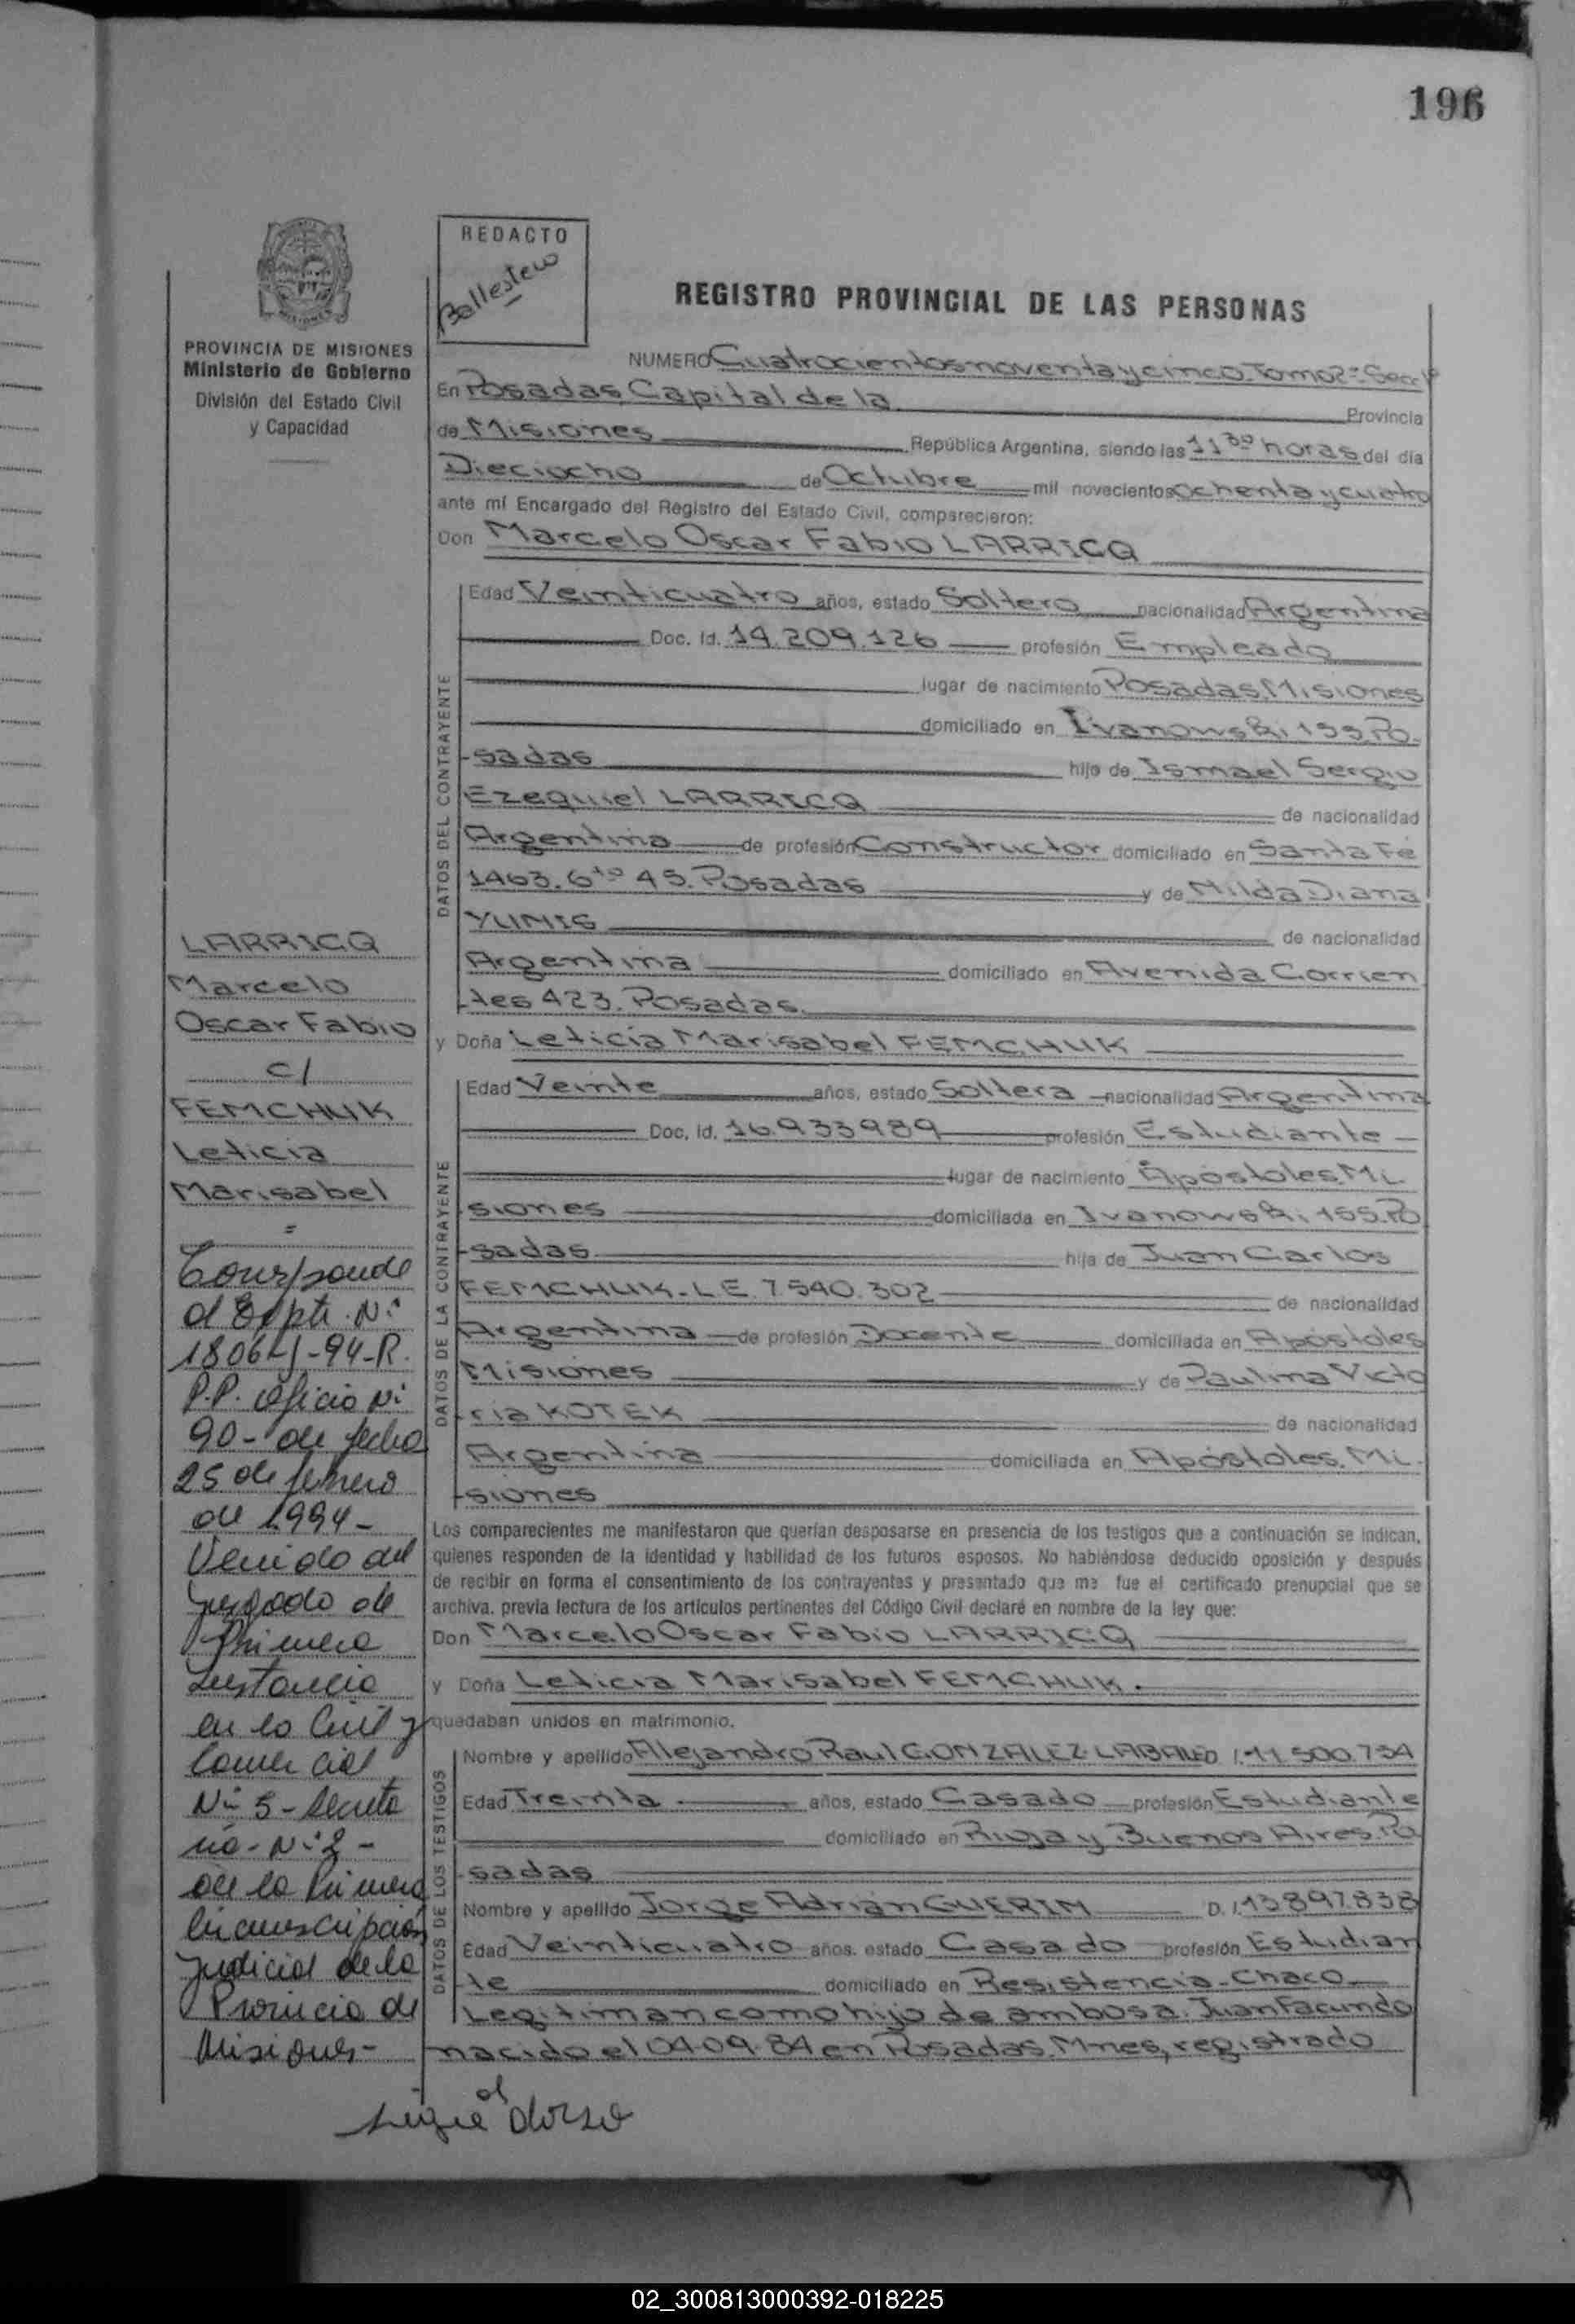 196
REDACTO
Ballestero
REGISTRO PROVINCIAL DE LAS PERSONAS
PROVINCIA DE MISIONES
Ministerio de Gobierno
División del Estado Civil
y Capacidad
NUMERO Cuatrocientos noventa y cinco. Tomo 2º Secc 1ª
En Posadas, Capital de la Provincia
de Misiones República Argentina, siendo las 11 30 horas del día
Dieciocho de Octubre mil novecientos ochenta y cuatro
ante mí Encargado del Registro del Estado Civil, comparecieron:
Don Marcelo Oscar Fabio LARRICQ
DATOS DEL CONTRAYENTE
Edad Veinticuatro años, estado Soltero nacionalidad Argentina
Doc. Id. 14.209.126 profesión Empleado
lugar de nacimiento Posadas, Misiones
domiciliado en Ivanowski 155. Po-
sadas hijo de Ismael Sergio
Ezequiel LARRICQ de nacionalidad
Argentina de profesión Constructor domiciliado en Santa Fé
1463. 6to 45. Posadas y de Nilda Diana
YUNIS de nacionalidad
Argentina domiciliado en Avenida Corrien
tes 423. Posadas.
y Doña Leticia Marisabel FEMCHUK
DATOS DE LA CONTRAYENTE
Edad Veinte años, estado Soltera nacionalidad Argentina
Doc. Id. 16.933989 profesión Estudiante
lugar de nacimiento Apóstoles, Mi
siones domiciliada en Ivanowski 155. Po
sadas hija de Juan Carlos
FEMCHUK - L.E. 7.540.302 de nacionalidad
Argentina de profesión Docente domiciliada en Apóstoles
Misiones y de Paulina Victo
ria KOTEK de nacionalidad
Argentina domiciliada en Apóstoles. Mi-
siones
Los comparecientes me manifestaron que querían desposarse en presencia de los testigos que a continuación se indican,
quienes responden de la identidad y habilidad de los futuros esposos. No habiéndose deducido oposición y después
de recibir en forma el consentimiento de los contrayentes y presentado que me fue el certificado prenupcial que se
archiva, previa lectura de los artículos pertinentes del Código Civil declaré en nombre de la ley que:
Don Marcelo Oscar Fabio LARRICQ
y Doña Leticia Marisabel FEMCHUK.
quedaban unidos en matrimonio.
DATOS DE LOS TESTIGOS
Nombre y apellido Alejandro Raul GONZALEZ LABALE D.I. 11.500.734
Edad Treinta años, estado Casado profesión Estudiante
domiciliado en Rioja y Buenos Aires. Po
sadas
Nombre y apellido Jorge Adrián GUERIN D.I. 13897.838
Edad Veinticuatro años, estado Casado profesión Estudian
te domiciliado en Resistencia - Chaco
Legitiman como hijo de ambos a: Juan Facundo
nacido el 04-09-84 en Posadas. Mnes, registrado
sigue al dorso
LARRICQ
Marcelo
Oscar Fabio
c/
FEMCHUK
Leticia
Marisabel
=
Corresponde
al Expte. Nº
1806 -94-R.
P.P. Oficio Nº
90 - de fecha
25 de febrero
de 1994 -
Venido del
Juzgado de
Primera
Instancia
en lo Civil y
Comercial
Nº 5 - Secreta
ria - Nº 2 -
de la Primera
Circunscripción
Judicial de la
Provincia de
Misiones -
02_300813000392-018225